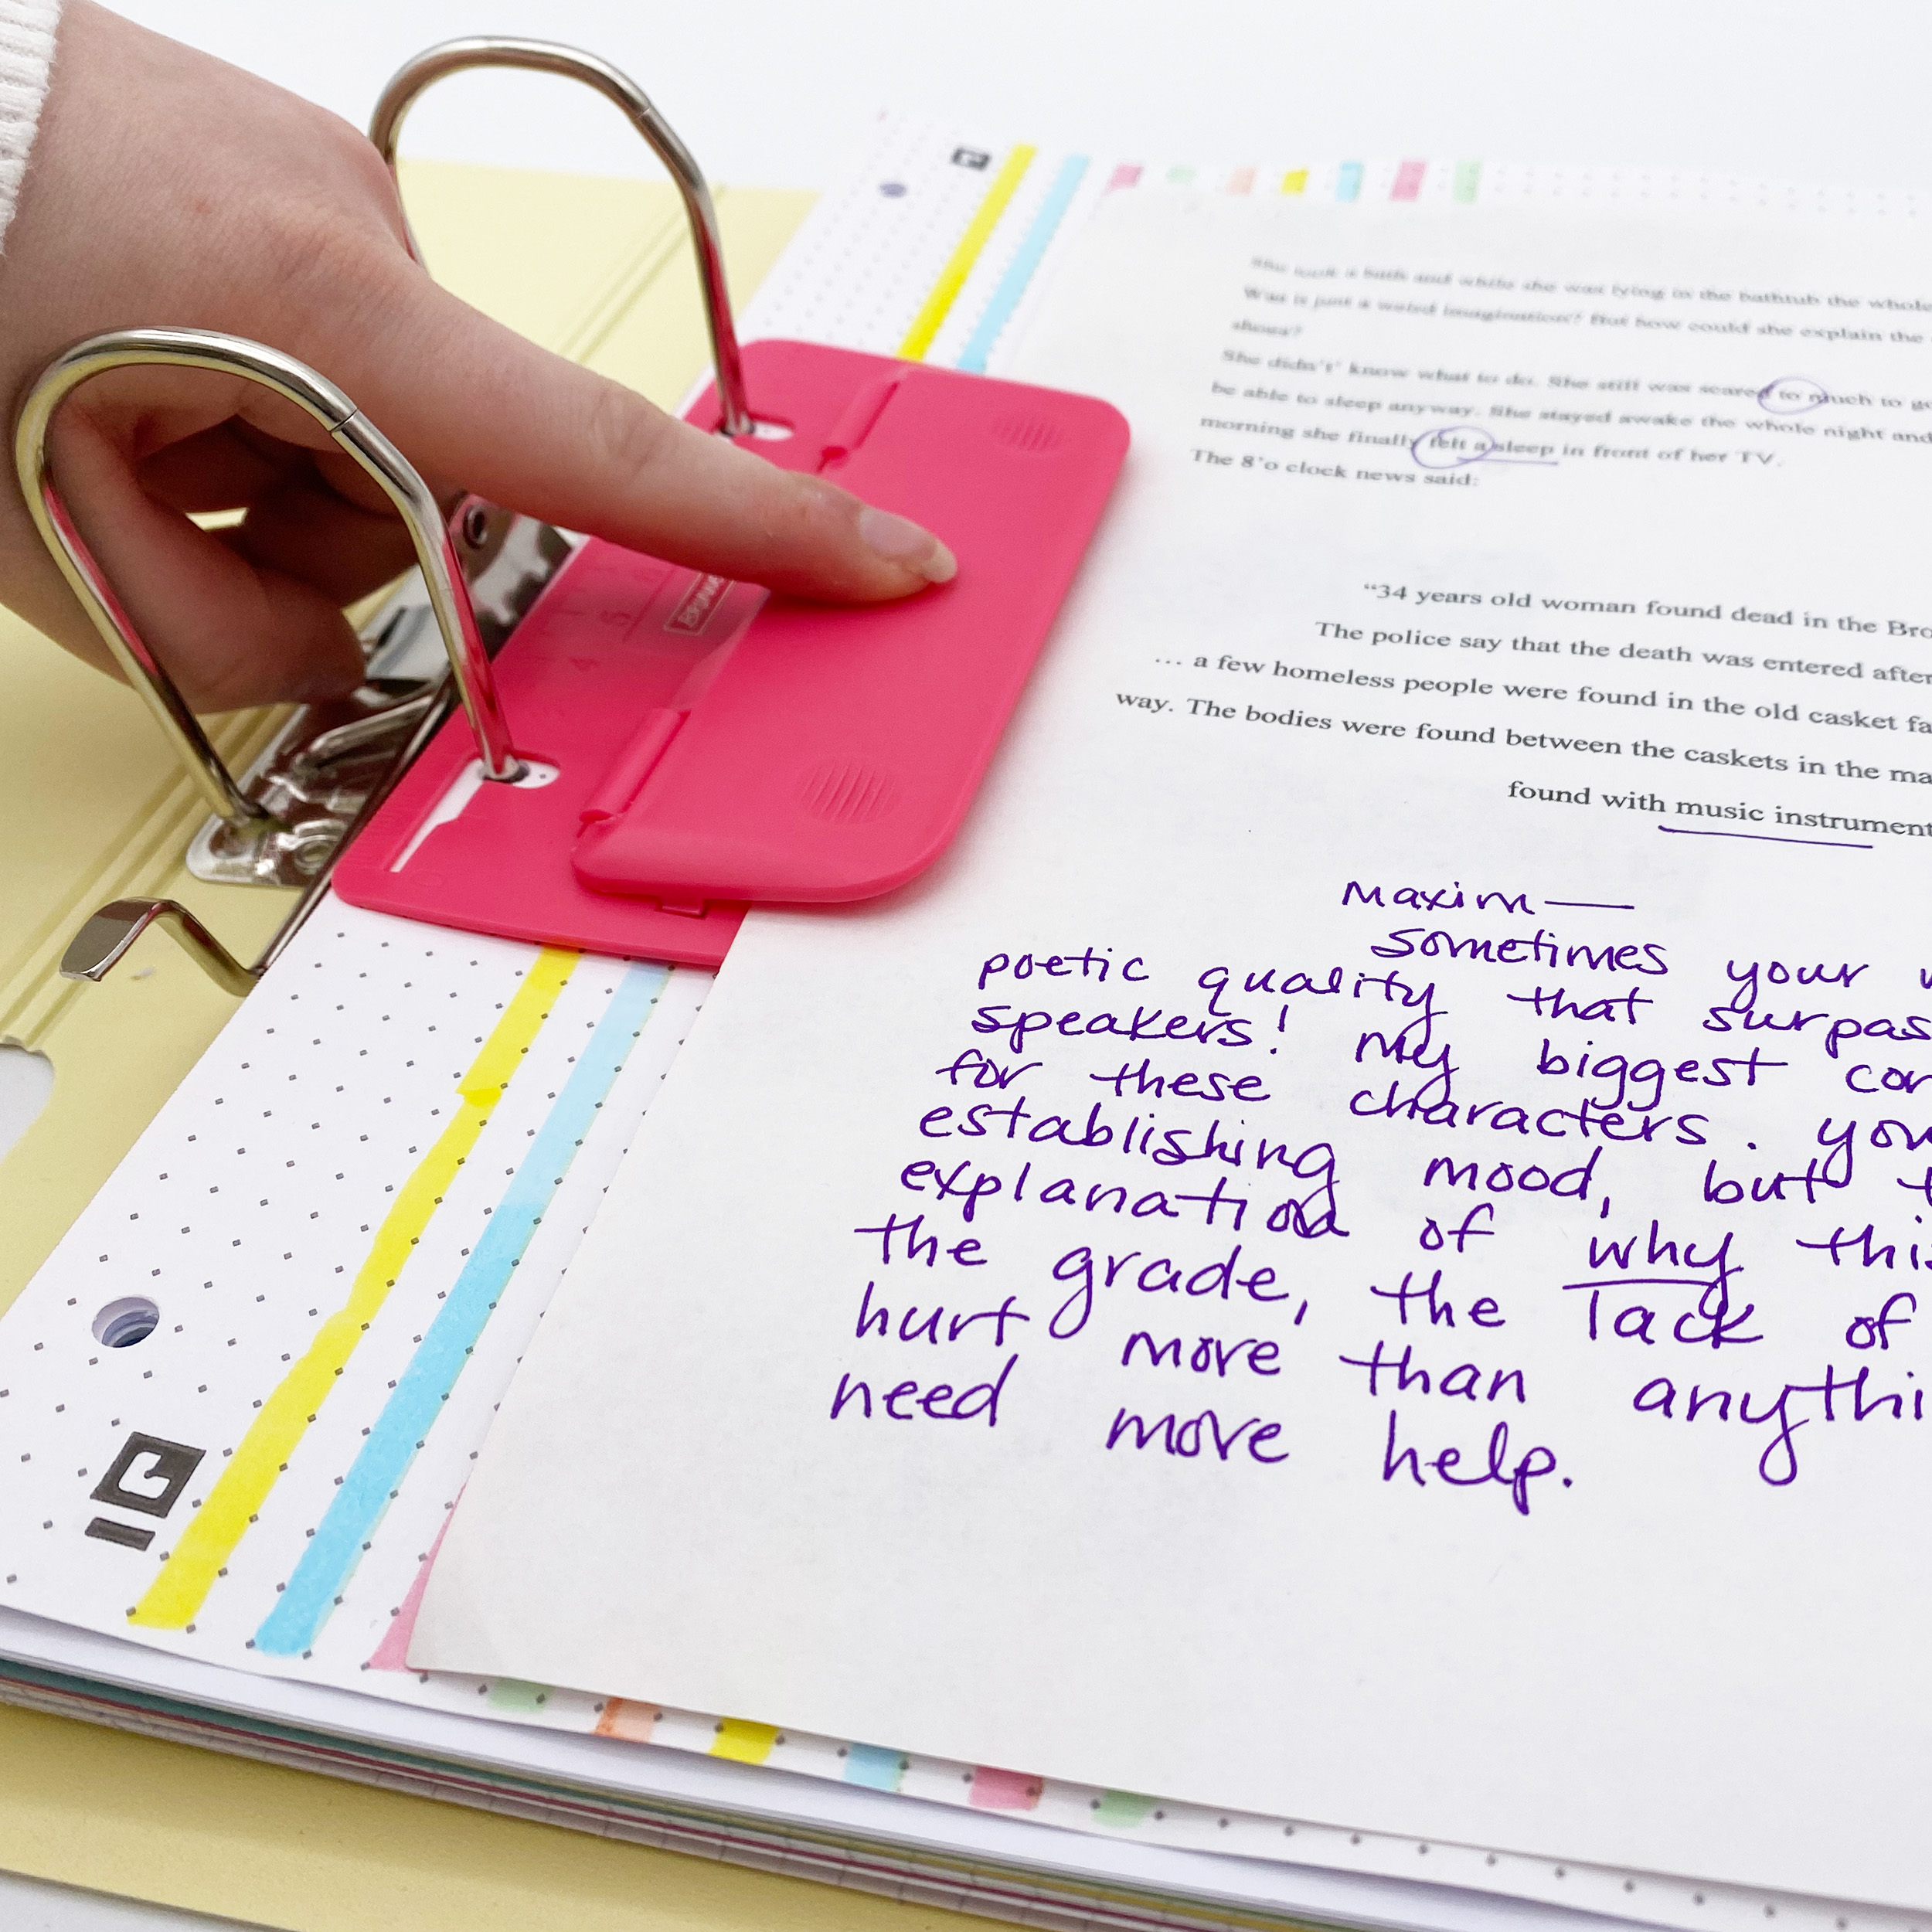 She took a bath and while she was lying in the bathtub the whole
Was is just a weird imagination? But how could she explain the
shoes?
She didn't' know what to do. She still was scared to much to go
be able to sleep anyway. She stayed awake the whole night and
morning she finally felt a sleep in front of her TV.
The 8'o clock news said:
"34 years old woman found dead in the Bro
The police say that the death was entered after
... a few homeless people were found in the old casket fa
way. The bodies were found between the caskets in the ma
found with music instrument
Maxim—
sometimes your
poetic quality that surpas
speakers! My biggest con
for these characters. you
establishing mood, but t
explanation of why this
the grade, the lack of
hurt more than anythi
need more help.
Brunnen